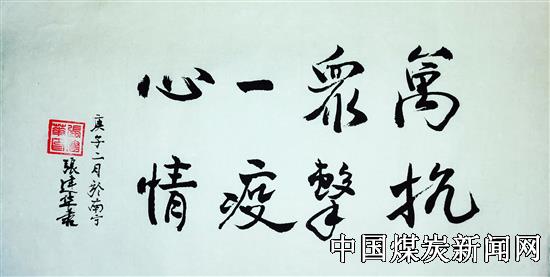 萬眾一心
抗擊疫情
庚子二月於南宁
張建华書
中国煤炭新闻网